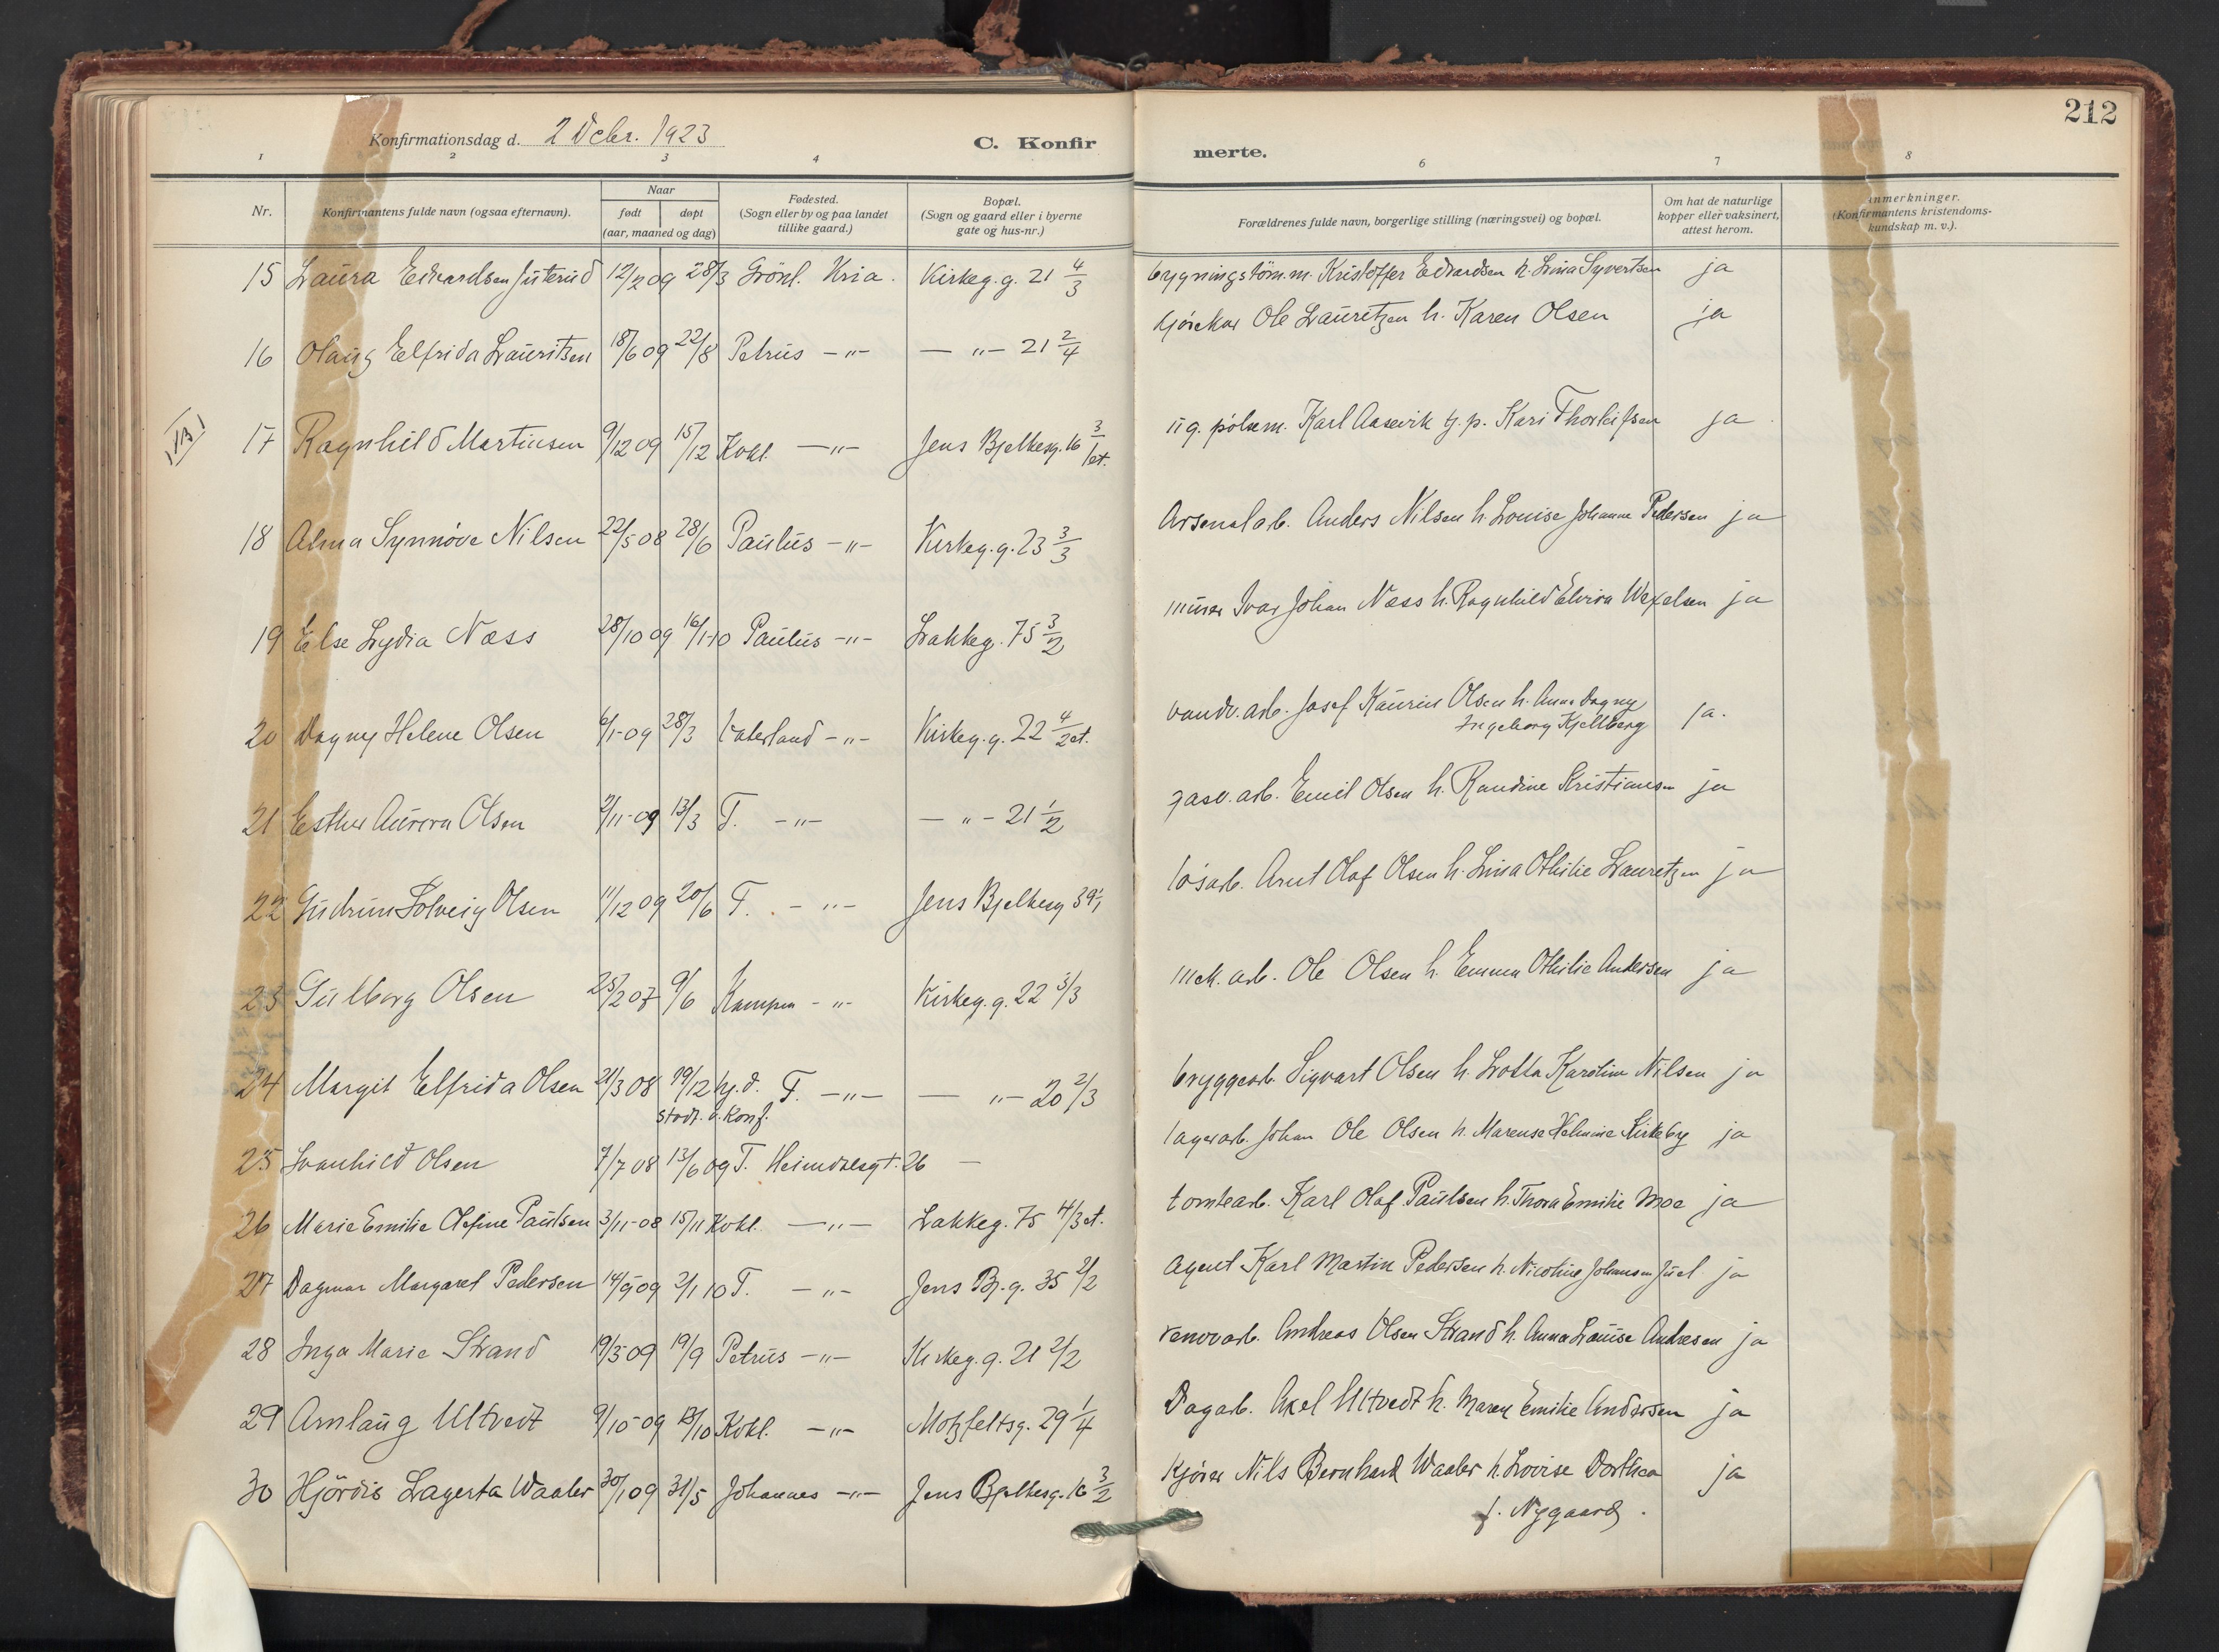 212
Konfirmationsdag d. 2 Decbr. 1923
C. Konfirmerte.
1 2 3 4 6 7 8
Nr.
Konfirmantens fulde navn (ogsaa efternavn).
Naar
født døpt
(aar, maaned og dag)
Fødested.
(Sogn eller by og paa landet
tillike gaard.)
Bopæl.
(Sogn og gaard eller i byerne
gate og hus-nr.)
Forældrenes fulde navn, borgerlige stilling (næringsvei) og bopæl.
Om hat de naturlige
kopper eller vaksinert,
attest herom.
anmerkninger.
(Konfirmantens kristendoms-
kundskap m. v.).
15 Laura Edvardsen 12/2 09 28/3 Grönl. Kria. Kirkeg.g. 21 4/3 bygningstöm.m. Kristoffer Edvardsen h. Lina Syvertsen ja
16 Olaug Elfrida Lauritsen 18/6 09 22/8 Petrus -"- -"- 21 2/4 Ole Lauretzen h. Karen Olsen ja
17 Ragnhild Martinsen 9/12 09 15/12 Kokl. -"- Jens Bjelkesg. 16 3/1 et. ug. pölsem. Karl Aasevik og p. Kari Thorleifsen ja
18 Alma Synnöve Nilsen 22/5 08 28/6 Paulus -"- Kirkeg.g. 23 3/3 Arsenalarb. Anders Nilsen h. Louise Johanne Pedersen ja
19 Else Lydia Næss 28/10 09 16/1-10 Paulus -"- Lakkeg. 75 3/2 murer Ivar Johan Næss h. Ragnhild Elvira Wexelsen ja
20 Dagny Helene Olsen 6/1-09 28/3 Vaterland -"- Kirkeg.g. 22 4/2 et. vandv.arb. Josef Olsen h. Anna Dagny
Ingeborg Kjellberg ja.
21 Esther Aurora Olsen 2/11-09 13/3 T. -"- -"- 21 1/2 gasv.arb. Emil Olsen h. Randine Kristiansen ja
22 Gudrun Solveig Olsen 11/12 09 20/6 T. -"- Jens Bjelkesg 39 1/1 lösarb. Arnt Olaf Olsen h. Lina Othilie Lauretzen ja
23 Gulborg Olsen 25/2 07 9/6 Kampen -"- Kirkeg.g. 22 3/3 mek. arb. Ole Olsen h. Emma Othilie Andersen ja
24 Margit Elfrida Olsen 21/3 08 19/12 hj.d. T. -"- -"- 20 2/3 bryggearb. Sigvart Olsen h. Lotta Karoline Nilsen ja
stadf. v. Konf.
25 Svanhild Olsen 7/7 08 13/6 09 T. Heimdalsgt. 26 - lagerarb. Johan Ole Olsen h. Marense Helmine Kirkeby ja
26 Marie Emilie Olefine Paulsen 3/11-08 15/11 Kokl. -"- Lakkeg. 75 4/3 et. tomtearb. Karl Olaf Paulsen h. Thora Emilie Moe ja
27 Dagmar Margaret Pedersen 14/9 09 2/1 10 T. -"- Jens Bj.g. 35 2/2 Agent Karl Martin Pedersen h. Nicoline Johansen Juel ja
28 Inga Marie Strand 19/5 09 19/9 Petrus -"- Kirkeg.g. 21 2/2 renov.arb. Andreas Olsen Strand h. Anna Louise Andresen ja
29 Arnlaug Ultvedt 9/10-09 /10 Kokl. -"- Motzfeltsg. 29 1/4 Dagarb. Axel Ultvedt h. Maren Emilie Andersen ja
30 Hjördis Lagerta Waaler 30/1 09 31/5 Johannes -"- Jens Bjelkesg. 16 3/2 Kjörer Nils Bernhard Waaler h. Lovise Dorthea ja
f. Nygaard.